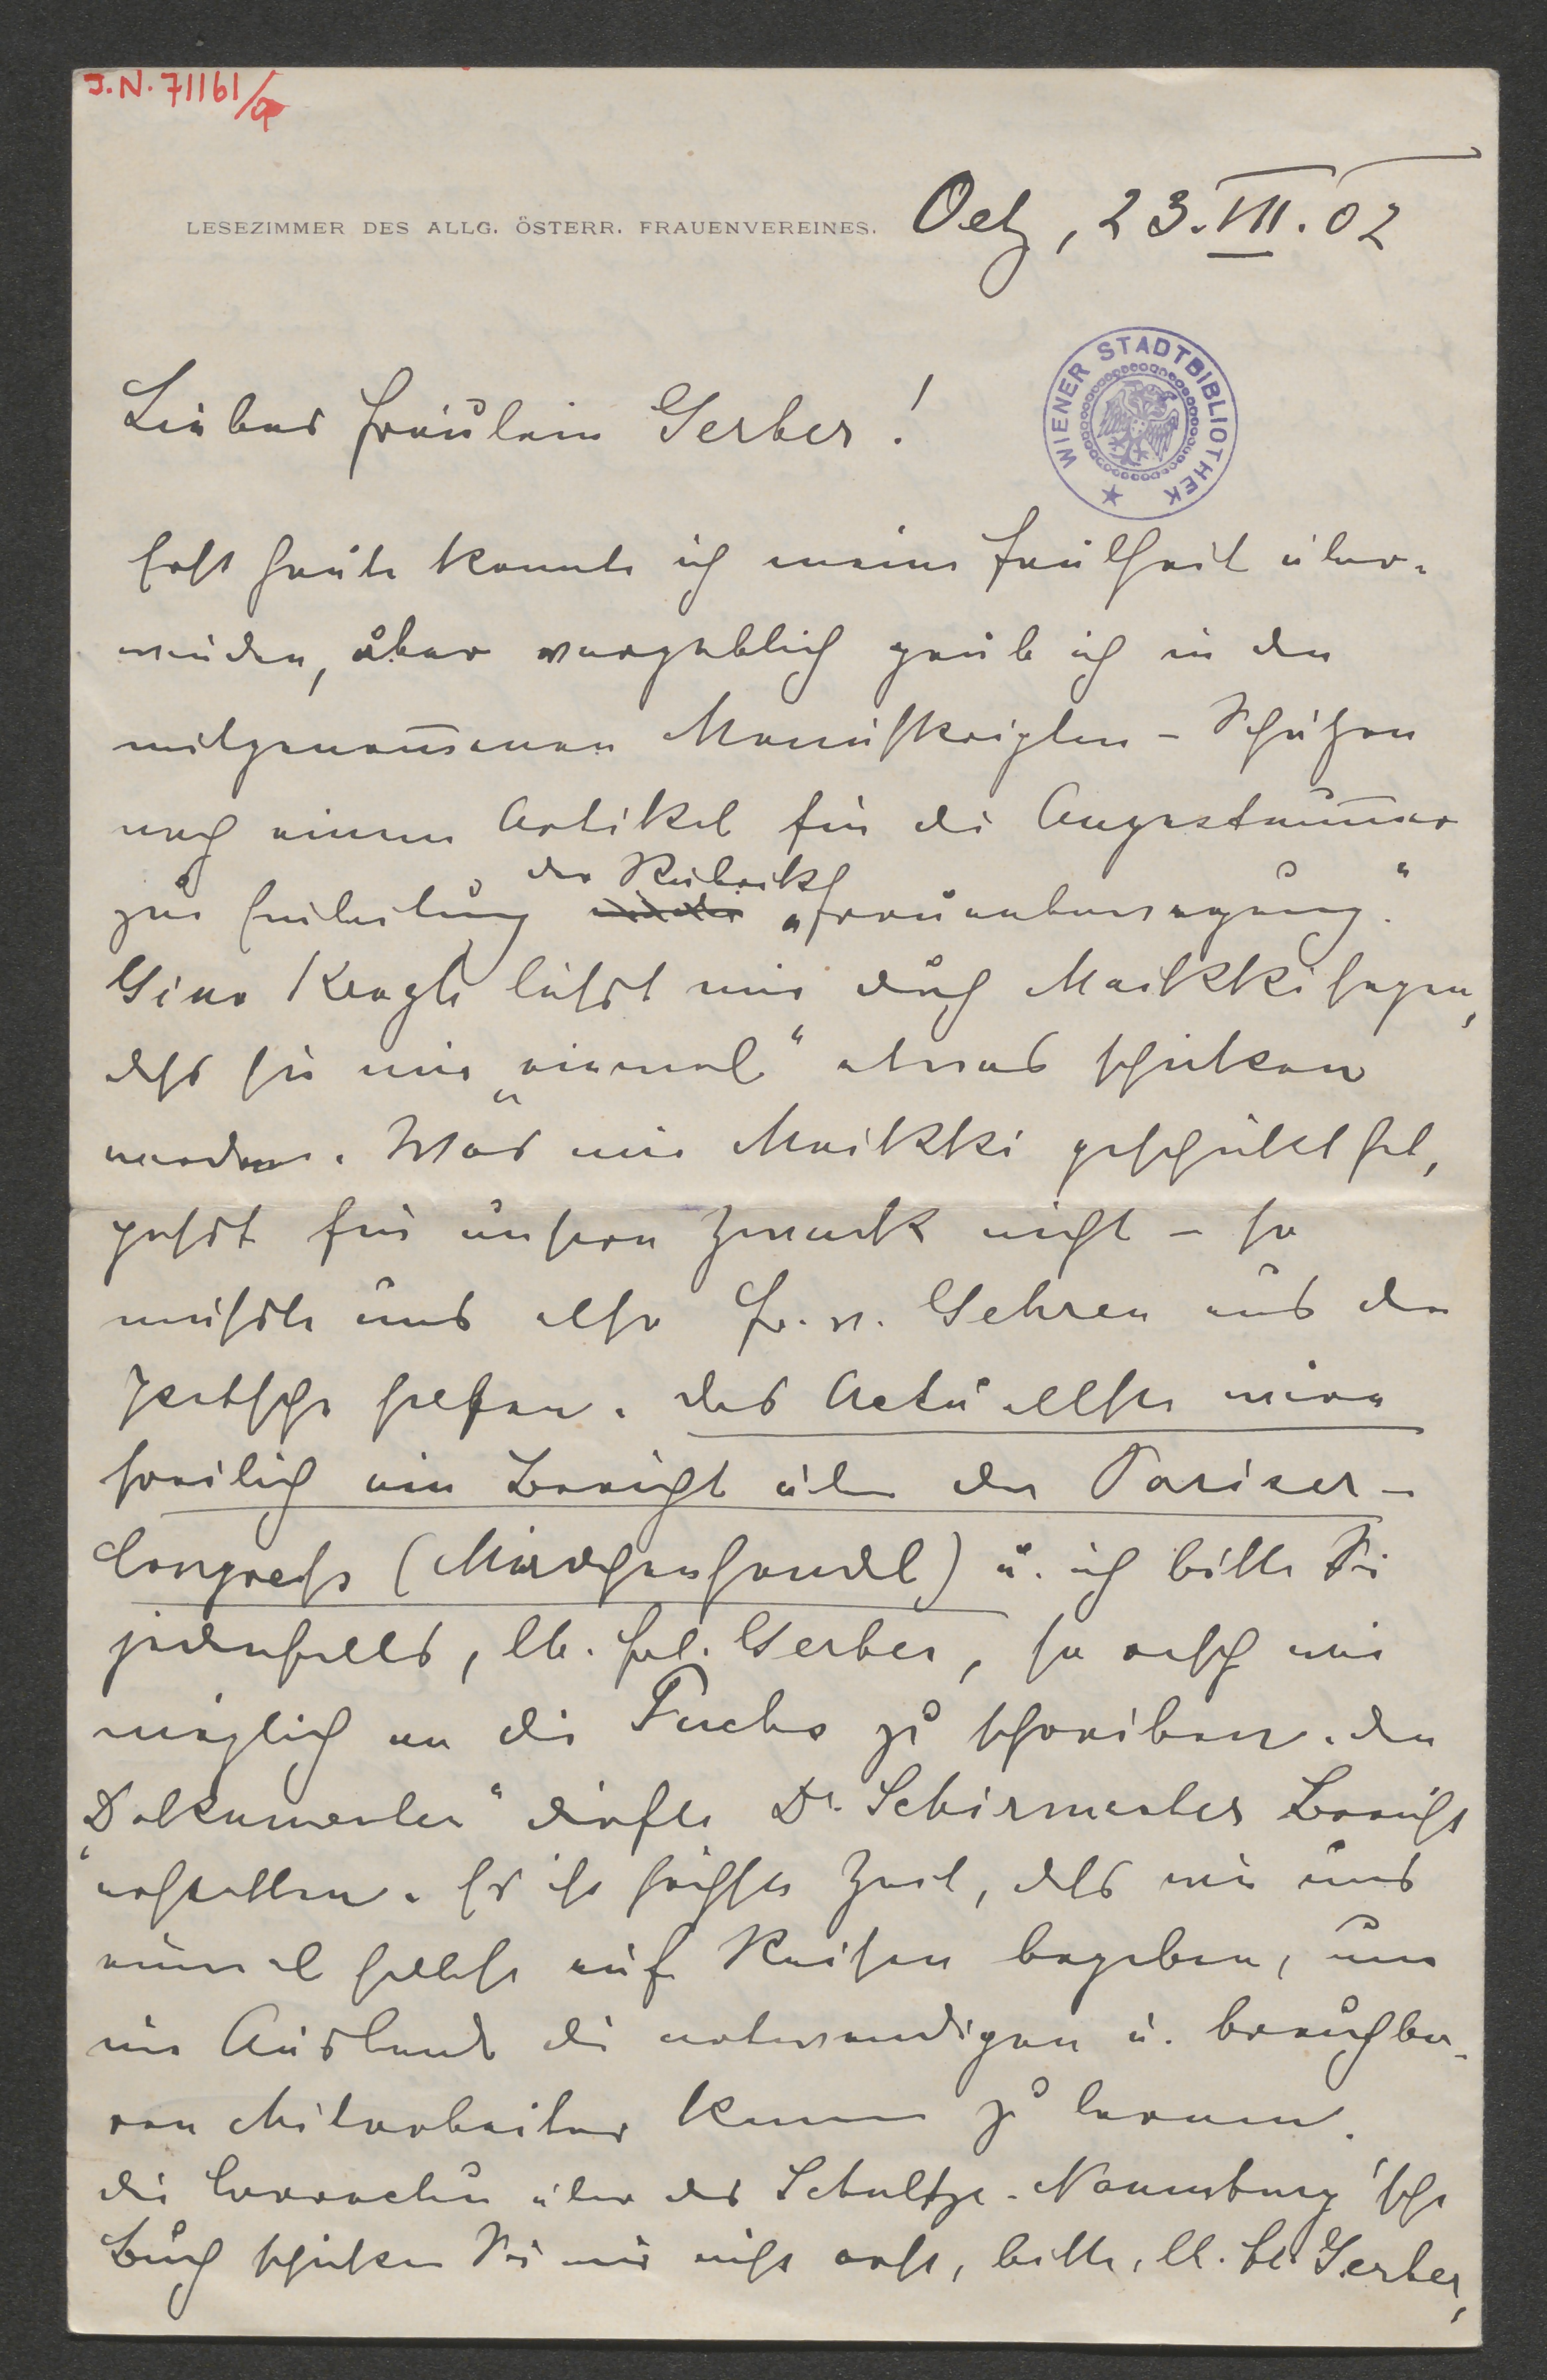 J.N. 71161/
LESEZIMMER DES ALLG. ÖSTERR. FRAUENVEREINES.
Oetz, 23. VII. 02
WIENER STADTBIBLIOTHEK
Liebes Fräulein Gerber!
Erst heute konnte ich meine Faulheit über-
winden, aber vergeblich grub ich in den
mitgenom̅enen Manuskripten-Schätzen
nach einem Artikel für die Augustnum̅er
zur Einleitung der Rubrik „Frauenbewegung.“
Gina Krogh läßt mir durch Maikki sagen,
daß sie mir „einmal“ etwas schicken
werde. Was mir Maikki geschickt hat,
paßt für unsern Zweck nicht – so
müßte uns also Fr. v. Gehren aus der
Patsche helfen. Das Actuellste wäre
freilich ein Bericht über den Pariser-
Congress (Mädchenhandel) u. ich bitte Sie
jedenfalls, lb. Frl. Gerber, so rasch wie
möglich an die Fuchs zu schreiben. Den
„Dokumenten“ dürfte Dr. Schirmacher Bericht
erstatten. Es ist höchste Zeit, daß wir uns
einmal selbst auf Reisen begeben, um
im Ausland die notwendigen u. brauchba-
ren Mitarbeiter kennen zu lernen.
Die Correctur über das Schultze-Naumburg'sche
Buch schicken Sie mir nicht erst, bitte, lb. Frl. Gerber,